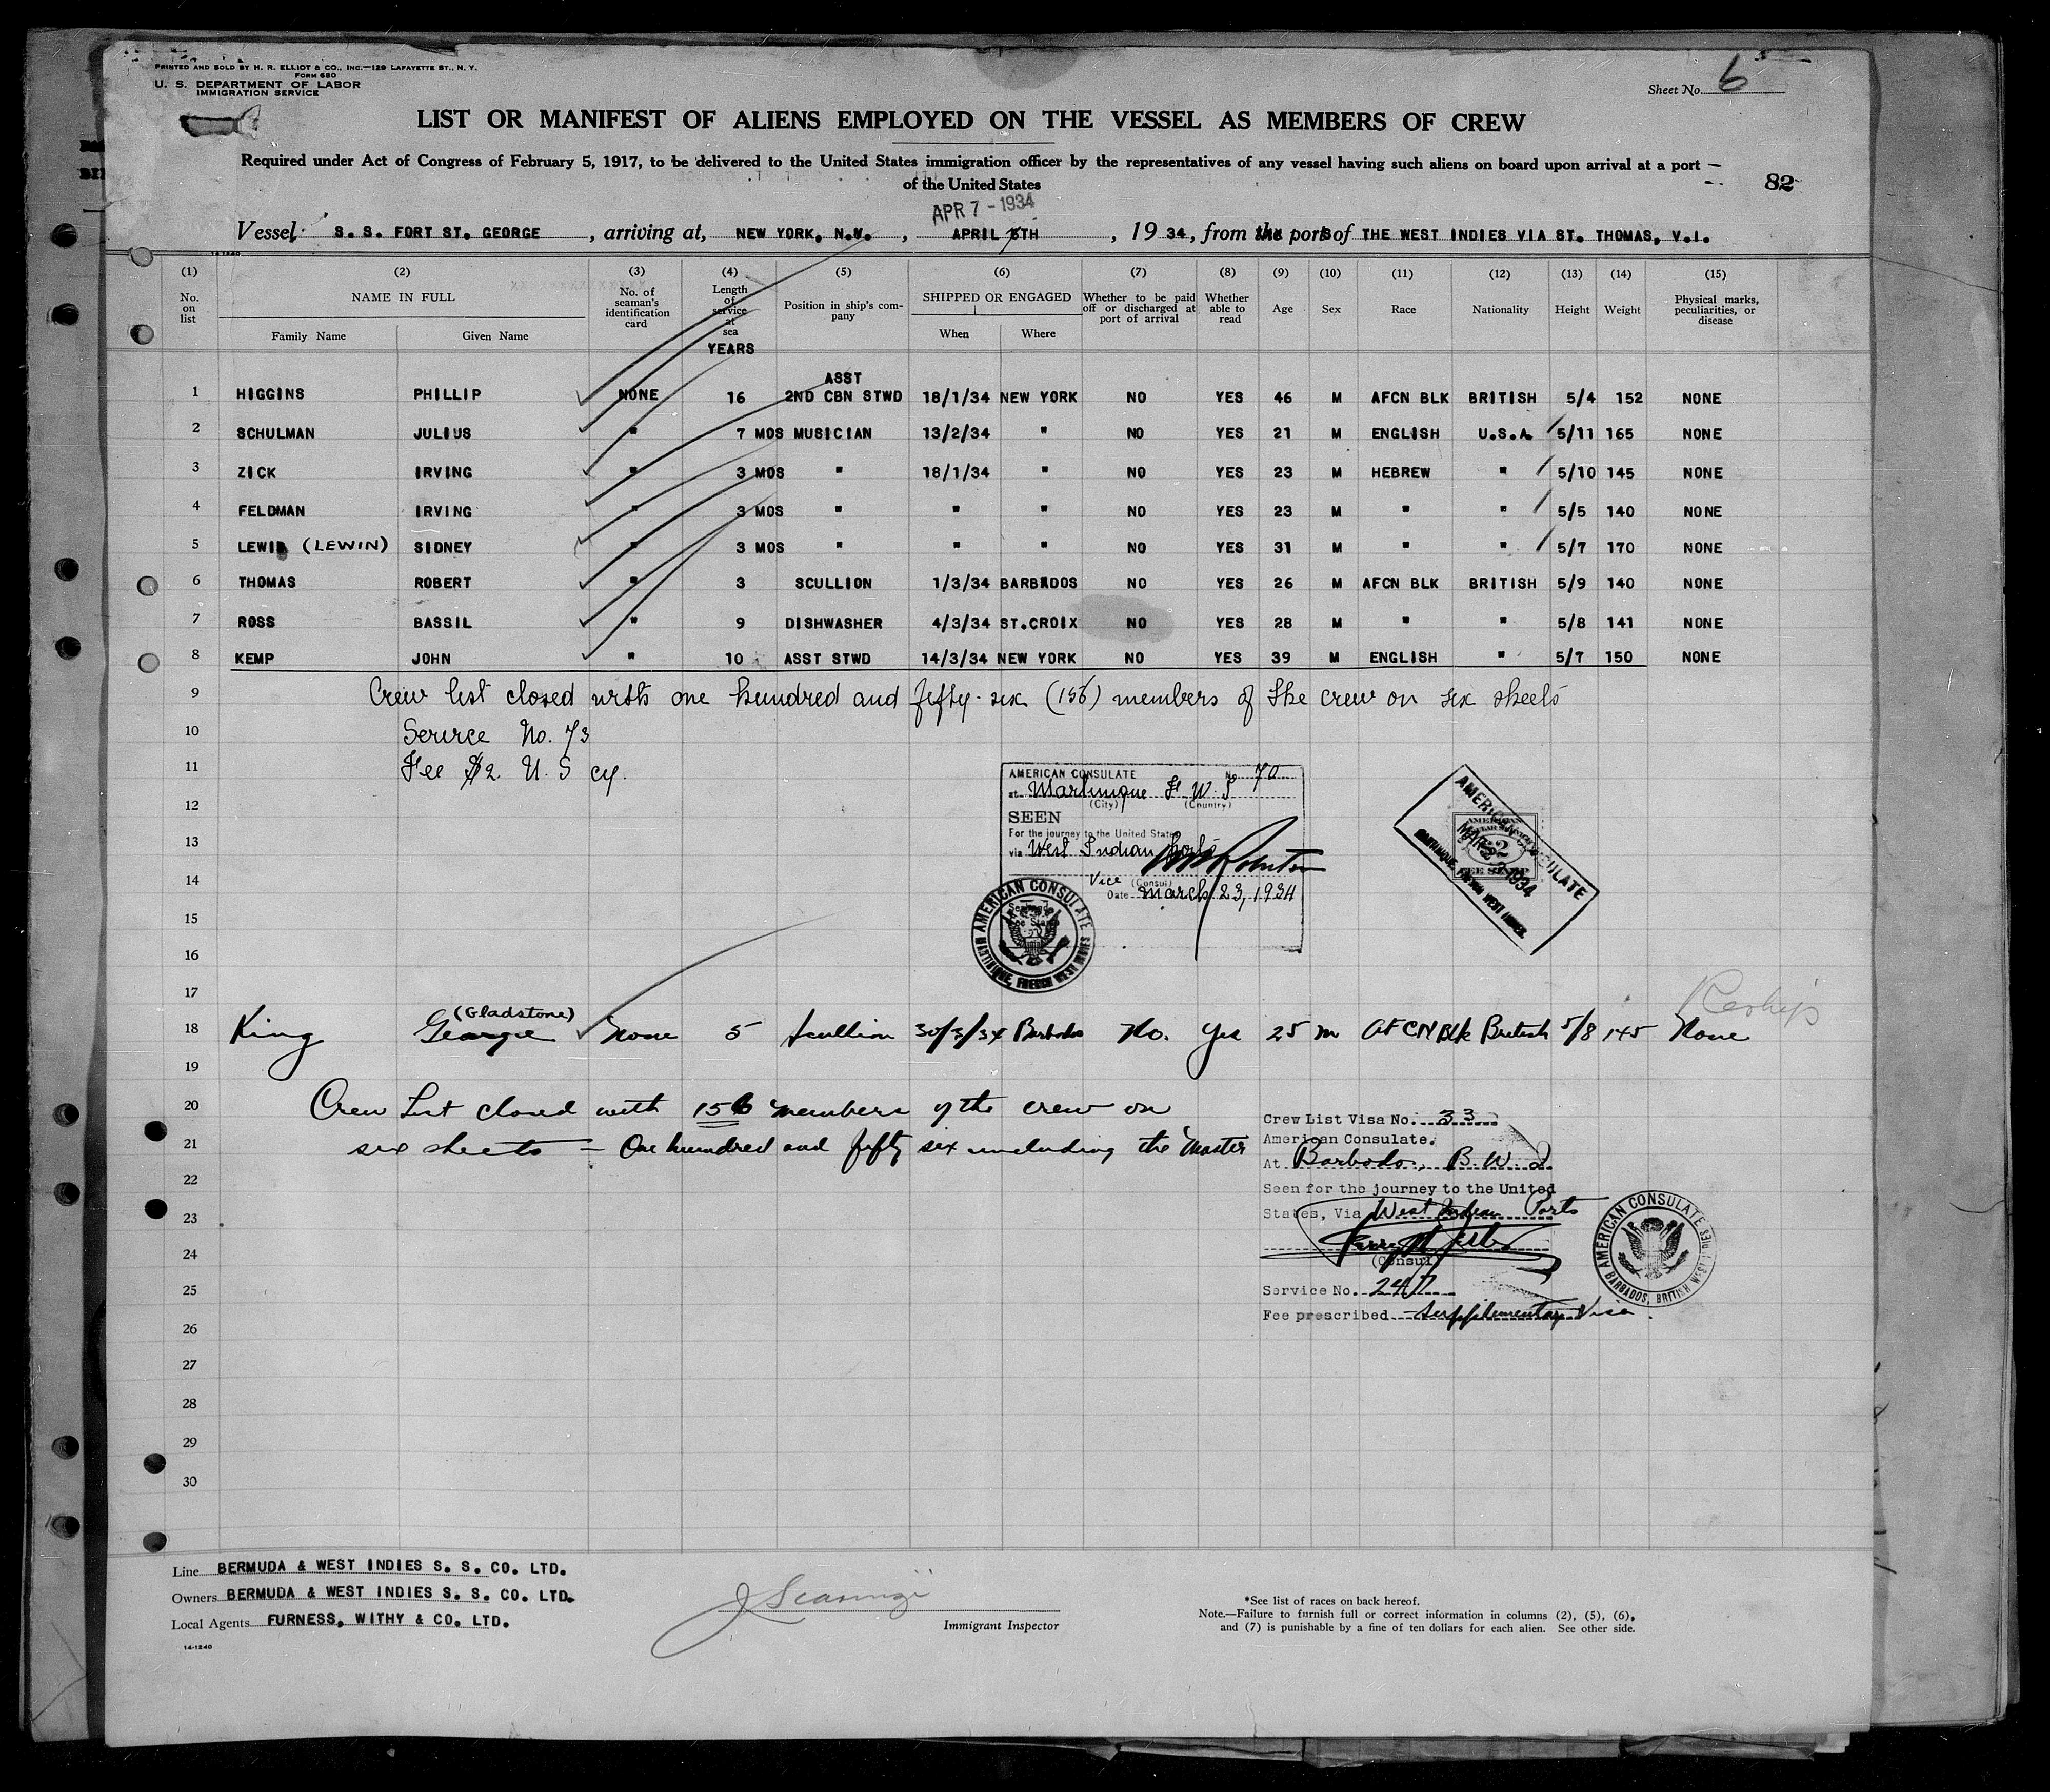 PRINTED AND SOLD BY H. R. ELLIOT & CO., INC.—129 LAFAYETTE ST., N. Y.
FORM 680
U. S. DEPARTMENT OF LABOR
IMMIGRATION SERVICE
Sheet No. 6
LIST OR MANIFEST OF ALIENS EMPLOYED ON THE VESSEL AS MEMBERS OF CREW
Required under Act of Congress of February 5, 1917, to be delivered to the United States immigration officer by the representatives of any vessel having such aliens on board upon arrival at a port
of the United States
82
APR 7 - 1934
Vessel S. S. FORT ST. GEORGE, arriving at, NEW YORK, N.Y., APRIL 5TH, 1934, from the ports of THE WEST INDIES VIA ST. THOMAS, V.I.
14-1240
(1) (2) (3) (4) (5) (6) (7) (8) (9) (10) (11) (12) (13) (14) (15)
No. on list NAME IN FULL No. of seaman's identification card Length of service at sea Position in ship's company SHIPPED OR ENGAGED Whether to be paid off or discharged at port of arrival Whether able to read Age Sex Race Nationality Height Weight Physical marks, peculiarities, or disease
Family Name Given Name When Where
YEARS
ASST
1 HIGGINS PHILLIP NONE 16 2ND CBN STWD 18/1/34 NEW YORK NO YES 46 M AFCN BLK BRITISH 5/4 152 NONE
2 SCHULMAN JULIUS " 7 MOS MUSICIAN 13/2/34 " NO YES 21 M ENGLISH U.S.A. 5/11 165 NONE
3 ZICK IRVING " 3 MOS " 18/1/34 " NO YES 23 M HEBREW " 5/10 145 NONE
4 FELDMAN IRVING " 3 MOS " " " NO YES 23 M " " 5/5 140 NONE
5 LEWIN (LEWIN) SIDNEY " 3 MOS " " " NO YES 31 M " " 5/7 170 NONE
6 THOMAS ROBERT " 3 SCULLION 1/3/34 BARBADOS NO YES 26 M AFCN BLK BRITISH 5/9 140 NONE
7 ROSS BASSIL " 9 DISHWASHER 4/3/34 ST.CROIX NO YES 28 M " " 5/8 141 NONE
8 KEMP JOHN " 10 ASST STWD 14/3/34 NEW YORK NO YES 39 M ENGLISH " 5/7 150 NONE
9 Crew list closed with one hundred and fifty-six (156) members of the crew on six sheets
10 Service No. 73
11 Fee $2 U. S cy.
AMERICAN CONSULATE No. 70
at Martinique F. W. I
(City) (Country)
12
SEEN
13 For the journey to the United States
via West Indian Ports
14 Vice (Consul)
Date March 23, 1934
AMERICAN CONSULATE
MARTINIQUE, FRENCH WEST INDIES
AMERICAN CONSULATE
MAR 1934
MARTINIQUE, FRENCH WEST INDIES
$2
15
16
17
(Gladstone)
18 King George None 5 Scullion 30/3/34 Barbados No. Yes 25 m AfCN Blk British 5/8 145 None
19
20 Crew List closed with 156 members of the crew on
21 six sheets — One hundred and fifty six including the Master
Crew List Visa No. 33
American Consulate.
At Barbados, B. W. I.
22 Seen for the journey to the United
23 States, Via West Indian Ports
24 (Consul)
25 Service No. 247
26 Fee prescribed Supplementary Visa.
AMERICAN CONSULATE
BARBADOS, BRITISH WEST INDIES
27
28
29
30
Line BERMUDA & WEST INDIES S. S. CO. LTD.
Owners BERMUDA & WEST INDIES S. S. CO. LTD.
Local Agents FURNESS, WITHY & CO. LTD.
14-1240
Immigrant Inspector
*See list of races on back hereof.
Note.—Failure to furnish full or correct information in columns (2), (5), (6),
and (7) is punishable by a fine of ten dollars for each alien. See other side.